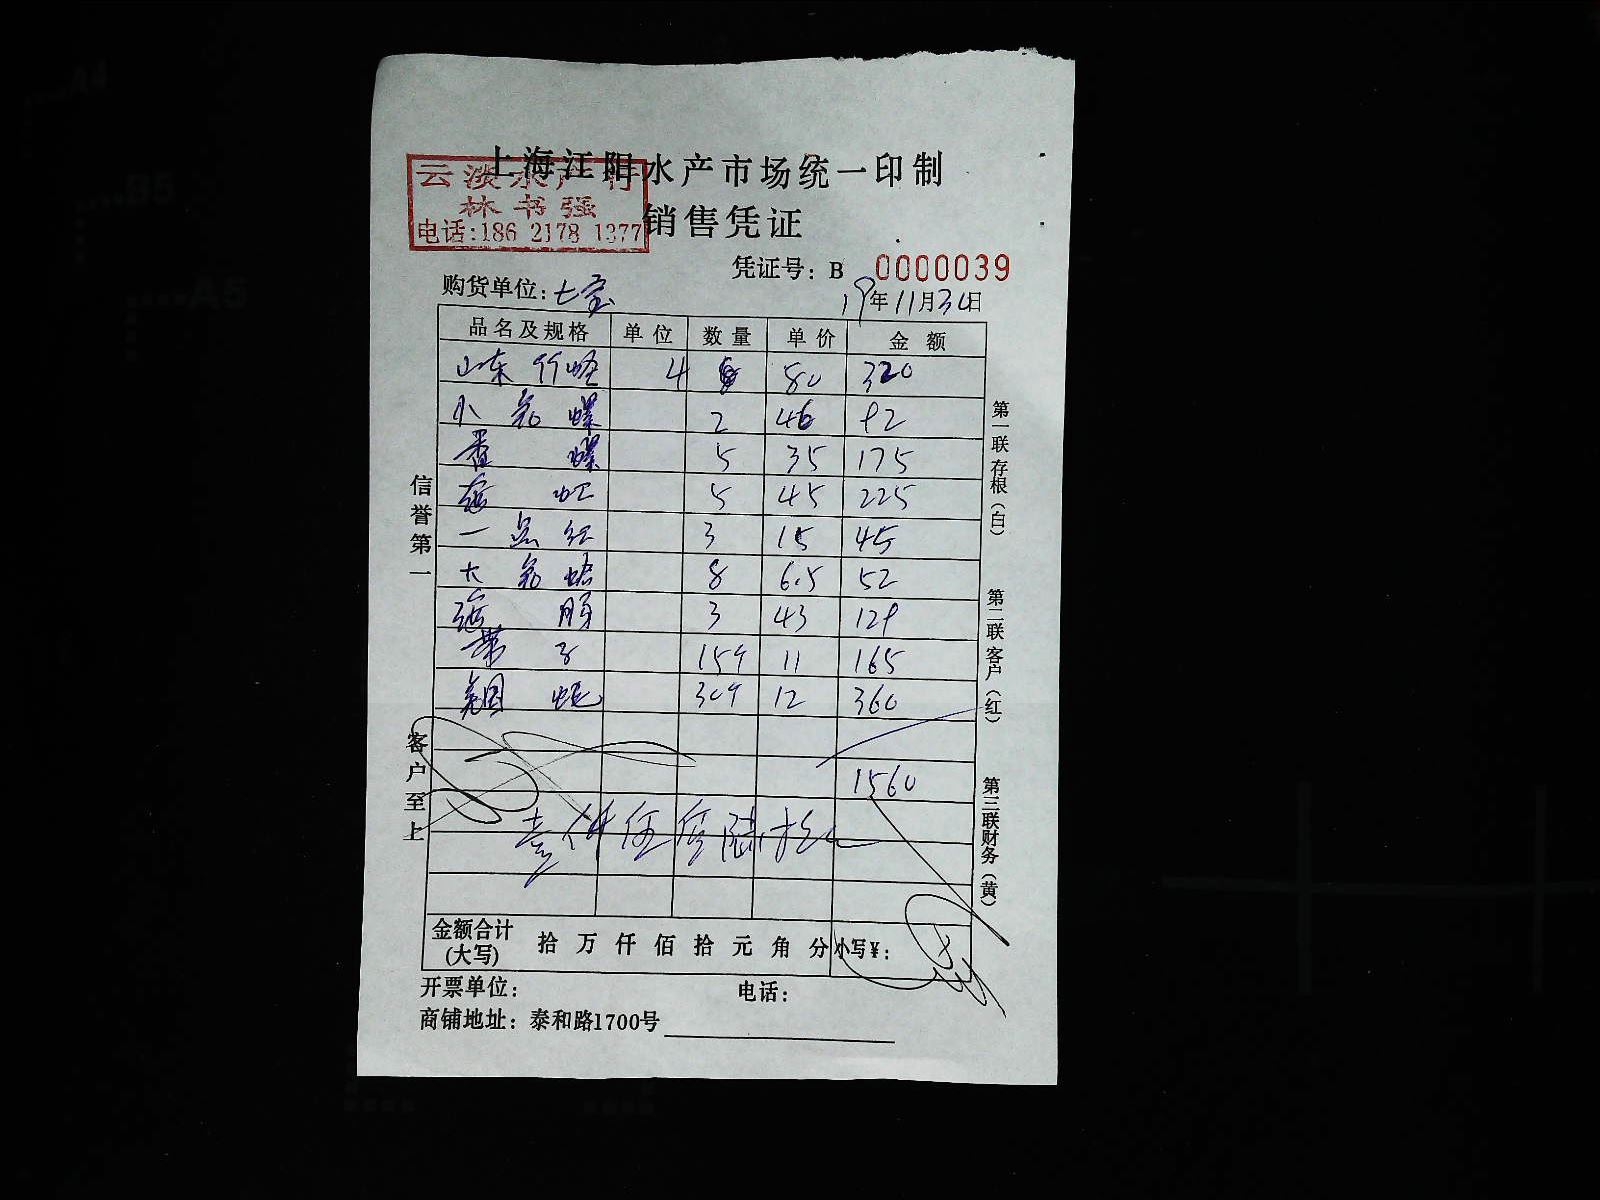 上海江阳水产市场统一印制
云淡水产行
林书强
电话:186 2178 1377
销售凭证
凭证号: B 0000039
购货单位:七宝
19年11月30日
品名及规格 单位 数量 单价 金额
山东竹蛏 4 80 320
小 螺 2 46 92
香螺 5 35 175
海虹 5 45 225
一品红 3 15 45
大 蛤 8 6.5 52
海肠 3 43 129
带子 15个 11 165
30个 12 360
1560
壹仟伍佰陆拾元
金额合计(大写) 拾 万 仟 佰 拾 元 角 分 小写¥:
开票单位: 电话:
商铺地址: 泰和路1700号
信誉第一
客户至上
第一联存根(白)
第二联客户(红)
第三联财务(黄)